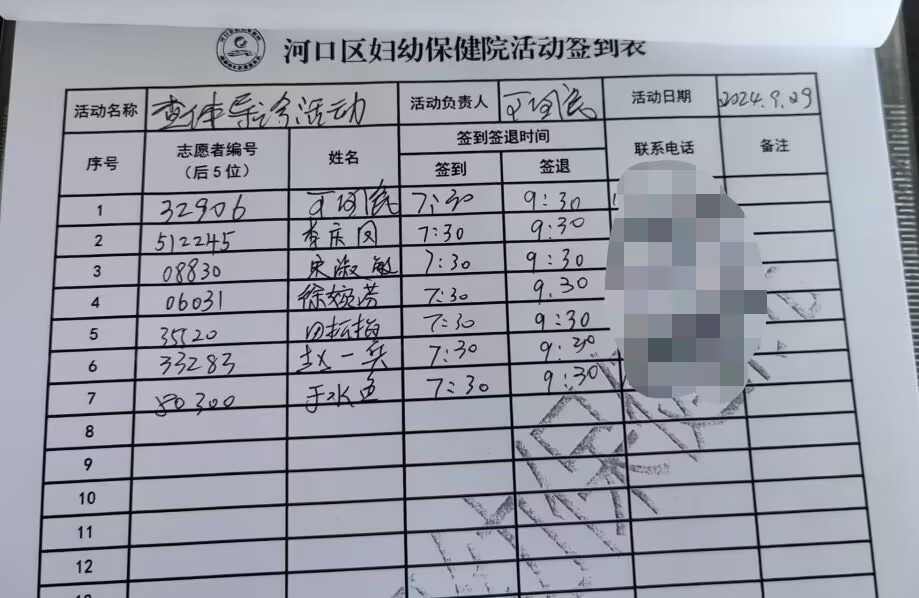 河口区妇幼保健院活动签到表
活动名称 查体导诊活动 活动负责人 活动日期 2024.9.29
序号 志愿者编号（后5位） 姓名 签到签退时间 联系电话 备注
签到 签退
1 32906 7:30 9:30
2 512245 李庆凤 7:30 9:30
3 08830 宋淑敏 7:30 9:30
4 06031 徐婉芳 7:30 9.30
5 35120 7:30 9:30
6 33283 赵一 7:30 9:30
7 80300 于水 7:30 9:30
8
9
10
11
12